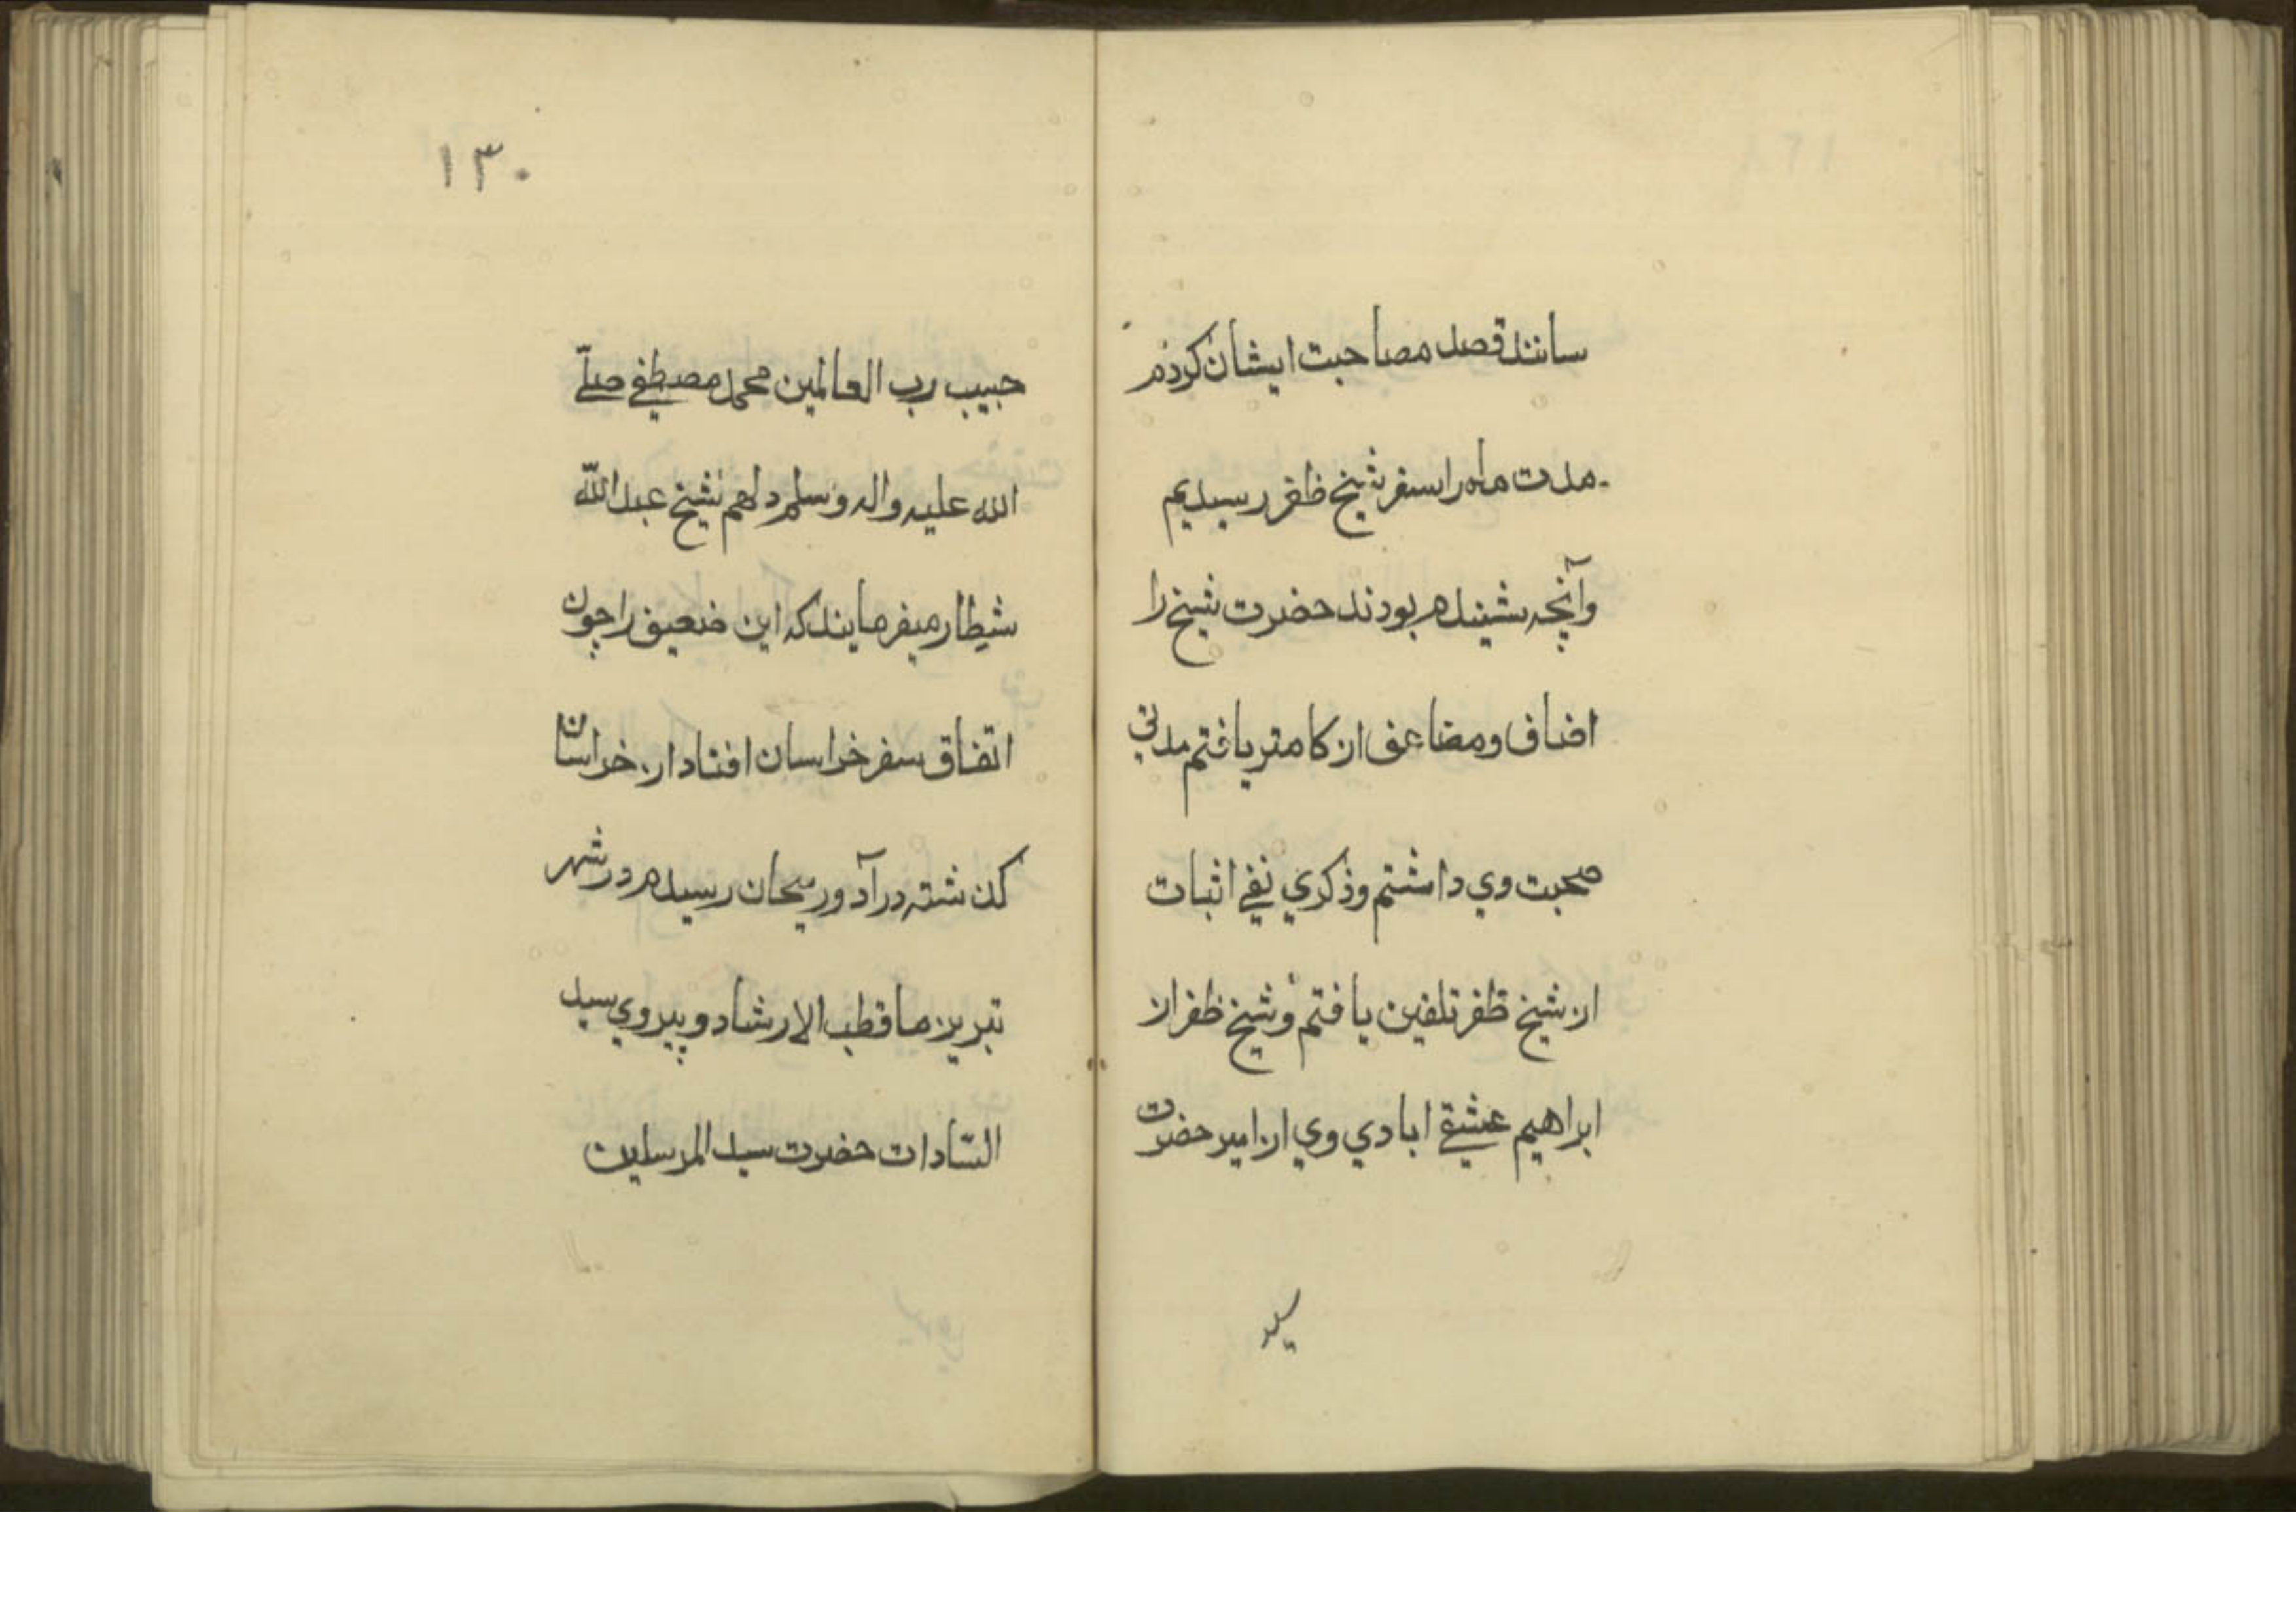 سانند قصد مصاحبت ایشان کردم
مدت ماه را سفر شیخ ظفر رسیدیم
وآنچه شنیده بودند حضرت شیخ را
اضاف ومضاعف از کامتر یافتم مدتي
صحبت وي داشتم وذکري نفي اثبات
از شیخ ظفر تلقین یافتم وشیخ ظفر از
ابراهیم عشقي ابادي وي از امیر حضرت
سید
۱۳۰
حبیب رب العالمین محمد مصطفي صلّے
الله علیه واله وسلم دهم شیخ عبد اللّه
شطار میفرمایند که این ضعیف را چون
اتفاق سفر خراسان افتاد از خراسان
کذشته در آدوربیجان رسیده در شهر
تبریز ما قطب الارشاد و پیروي سید
السّادات حضرت سید المرسلین